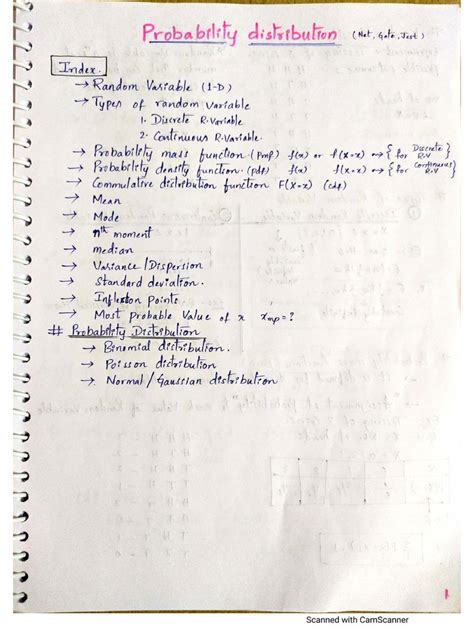 Probability distribution (Net, Gate, Jest)
Index.
→ Random Variable (1-D)
→ Types of random variable
1. Discrete R.Variable
2. Continuous R.Variable.
→ Probability mass function (Pmf) f(x) or f(X=x) ↔ { for Discrete R.V }
→ Probability density function (pdf) f(x) f(X=x) ↔ { for Continuous R.V }
→ Commulative distribution function F(X=x) (cdf)
→ Mean
→ Mode
→ nth moment
→ median
→ Variance / Dispersion
→ Standard deviation.
→ Inflexton Points.
→ Most Probable Value of x xmp = ?
# Probability Distribution
→ Binomial distribution.
→ Poisson distribution
→ Normal / Gaussian distribution
1
Scanned with CamScanner